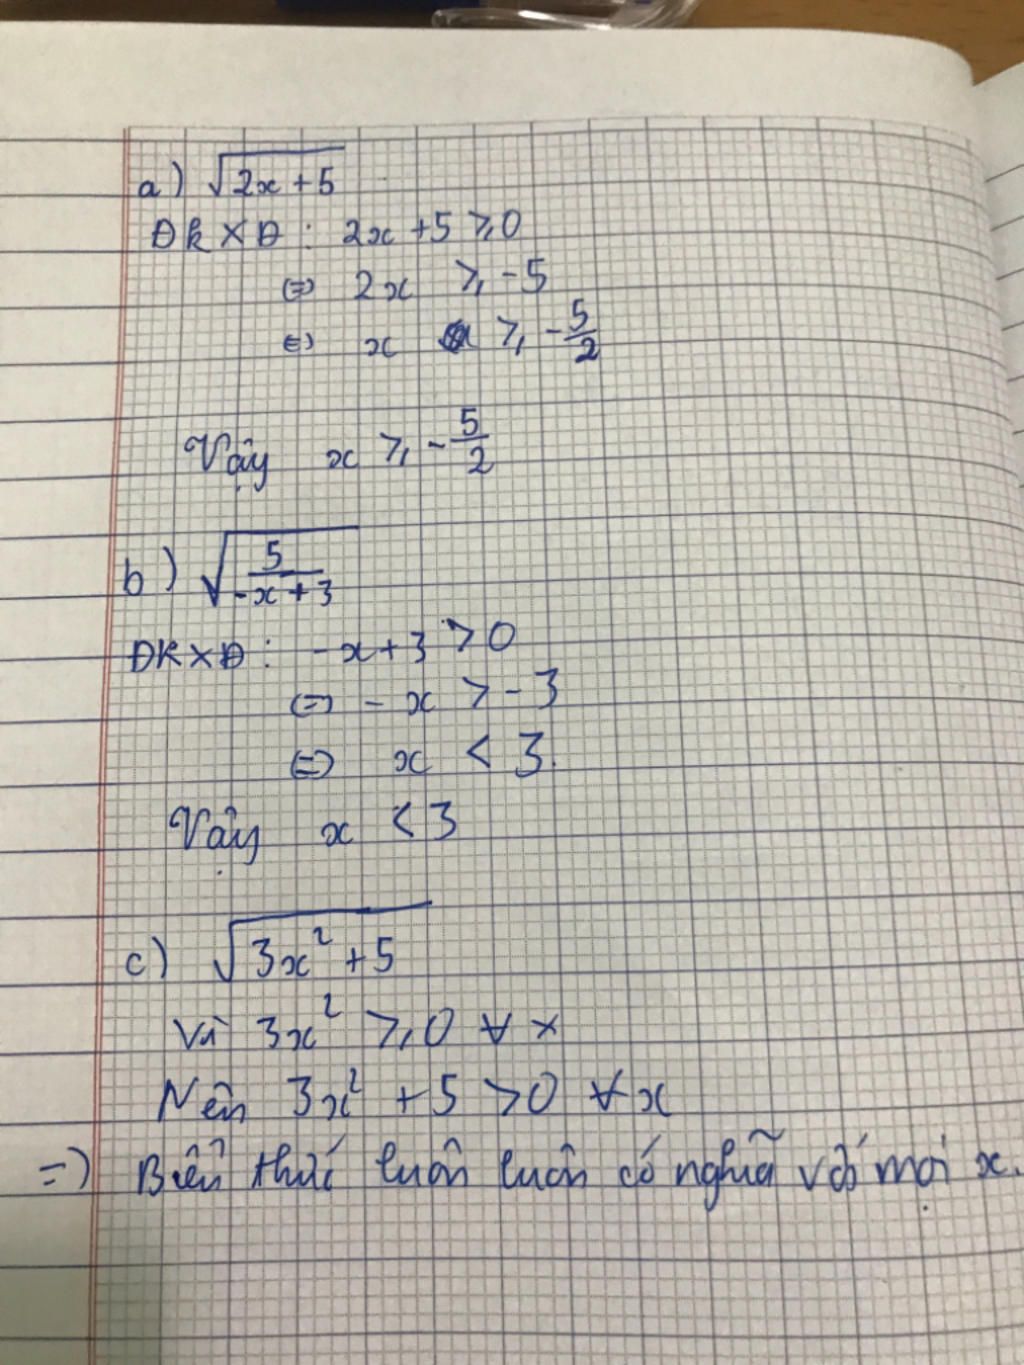 a) √(2x+5)
ĐKXĐ: 2x+5 ≥ 0
⇔ 2x ≥ -5
⇔ x ≥ -5/2
Vậy x ≥ -5/2
b) √(5/(-x+3))
ĐKXĐ: -x+3 > 0
⇔ -x > -3
⇔ x < 3.
Vậy x < 3
c) √(3x²+5)
Vì 3x² ≥ 0 ∀x
Nên 3x² + 5 > 0 ∀x
=) Biểu thức luôn luôn có nghĩa với mọi x.